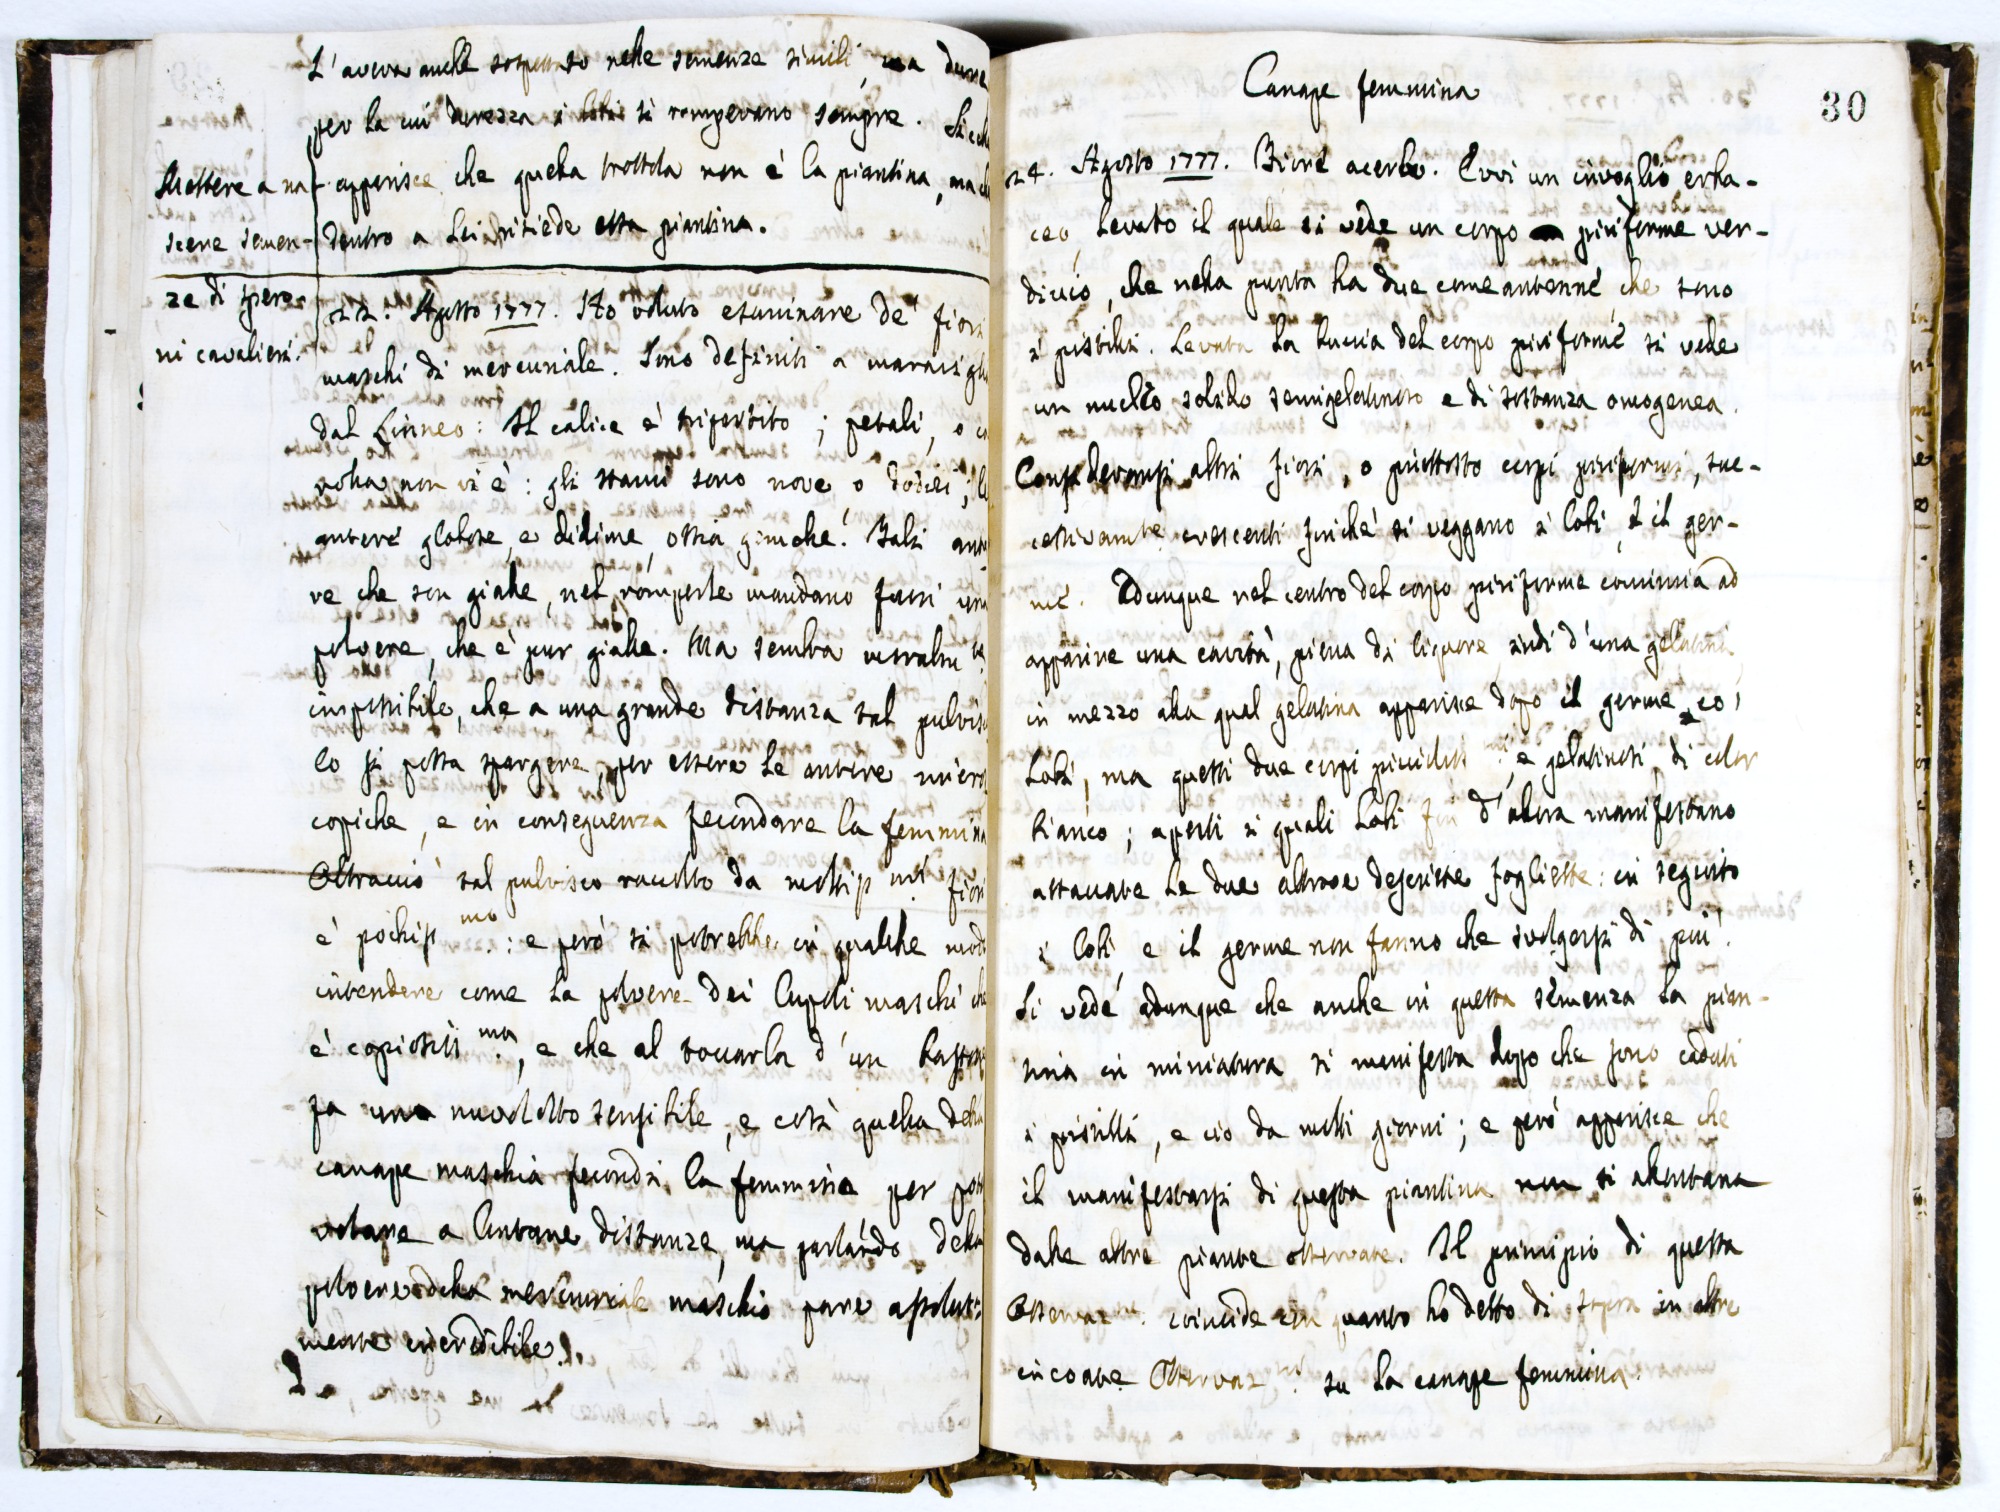 L'aveva anche sospettato nelle semenze simili, ma dure
per la cui durezza i lobi si rompevano sempre. Sicche
apparisce che quella trottola non è la piantina, ma che
dentro a lei risiede essa piantina.
Mettere a na-
scere semen-
ze di spero-
ni cavalieri.
22. Agosto 1777. Ho voluto esaminare de' fiori
maschi di mercuriale. Sono definiti a maraviglia
dal Linneo: Il calice è tripartito; petali, o co
rolla non vi è: gli stami sono nove o dodici; le
antere globose, e didime, ossia gemelle. Tali ante
re che son gialle, nel romperle mandano fuori una
polvere, che è pur gialla. Ma sembra
impossibile, che a una grande distanza tal pulvisco
lo si possa spargere, per essere le antere micros
copiche, e in conseguenza fecondare la femmina
Oltracciò tal pulvisco raccolto da moltiss.mi fiori
è pochiss.mo: e però si potrebbe in qualche modo
intendere come la polvere dei Lupoli maschi che
è copiosiss.ma, e che al toccarla d'un
fa una nuvoletta sensibile, e così quella della
canape maschia fecondi la femmina per poter
volare a lontane distanze, ma parlando della
polvere della mercuriale maschio pare assoluta
mente incredibile.
Canape femmina
30
24. Agosto 1777. Fiore acerbo. Evvi un invoglio erba-
ceo, levato il quale si vede un corpo piriforme ver-
diccio, che nella punta ha due come antenne che sono
i pistilli. Levata la buccia del corpo piriforme si vede
un nucleo solido semigelatinoso e di sostanza omogenea.
Consideransi altri fiori, o piuttosto corpi piriformi, suc-
cessivam.te crescenti finché si veggano i lobi, e il ger-
me. Adunque nel centro del corpo piriforme comincia ad
apparire una cavità, piena di liquore, indi d'una gelatina
in mezzo alla qual gelatina apparisce dopo il germe co'
lobi, ma questi due corpi picciolissi.mi, e gelatinosi, di color
bianco; aperti i quali lobi fin d'allora manifestano
attaccate le due altrove descritte fogliette: in seguito
i lobi e il germe non fanno che svolgersi di più.
Si vede adunque che anche in questa semenza la pian-
tina in miniatura si manifesta dopo che sono caduti
i pistilli, e ciò da molti giorni; e però apparisce che
il manifestarsi di questa piantina non si allontana
dalle altre piante osservate. Il principio di questa
Osservaz.ne coincide con quanto ho detto di sopra in altre
incoate Osservaz.ni su la canape femmina.